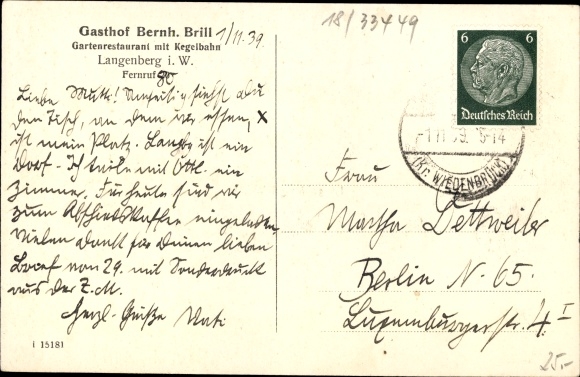 18/33449
Gasthof Bernh. Brill
1/11.39.
Gartenrestaurant mit Kegelbahn
Langenberg i. W.
Fernruf 80
6 6
Deutsches Reich
-1.11.39. 5-14
(Kr. WIEDENBRÜCK)
Liebe Mutti! Umseitig siehst du
den Tisch, an dem wir essen, X
ist mein Platz. Langbg ist ein
Dorf. Ich teile mit Ottl. ein
Zimmer. Für heute sind wir
zum Abschiedskaffee eingeladen.
Vielen Dank für Deinen lieben
Brief von 29. mit Sonderdruck
aus der Z.M.
Herzl. Grüße Vati
Frau
Martha Dettweiler
Berlin N. 65.
Luxemburgerstr. 4 I
i 15181
25.-